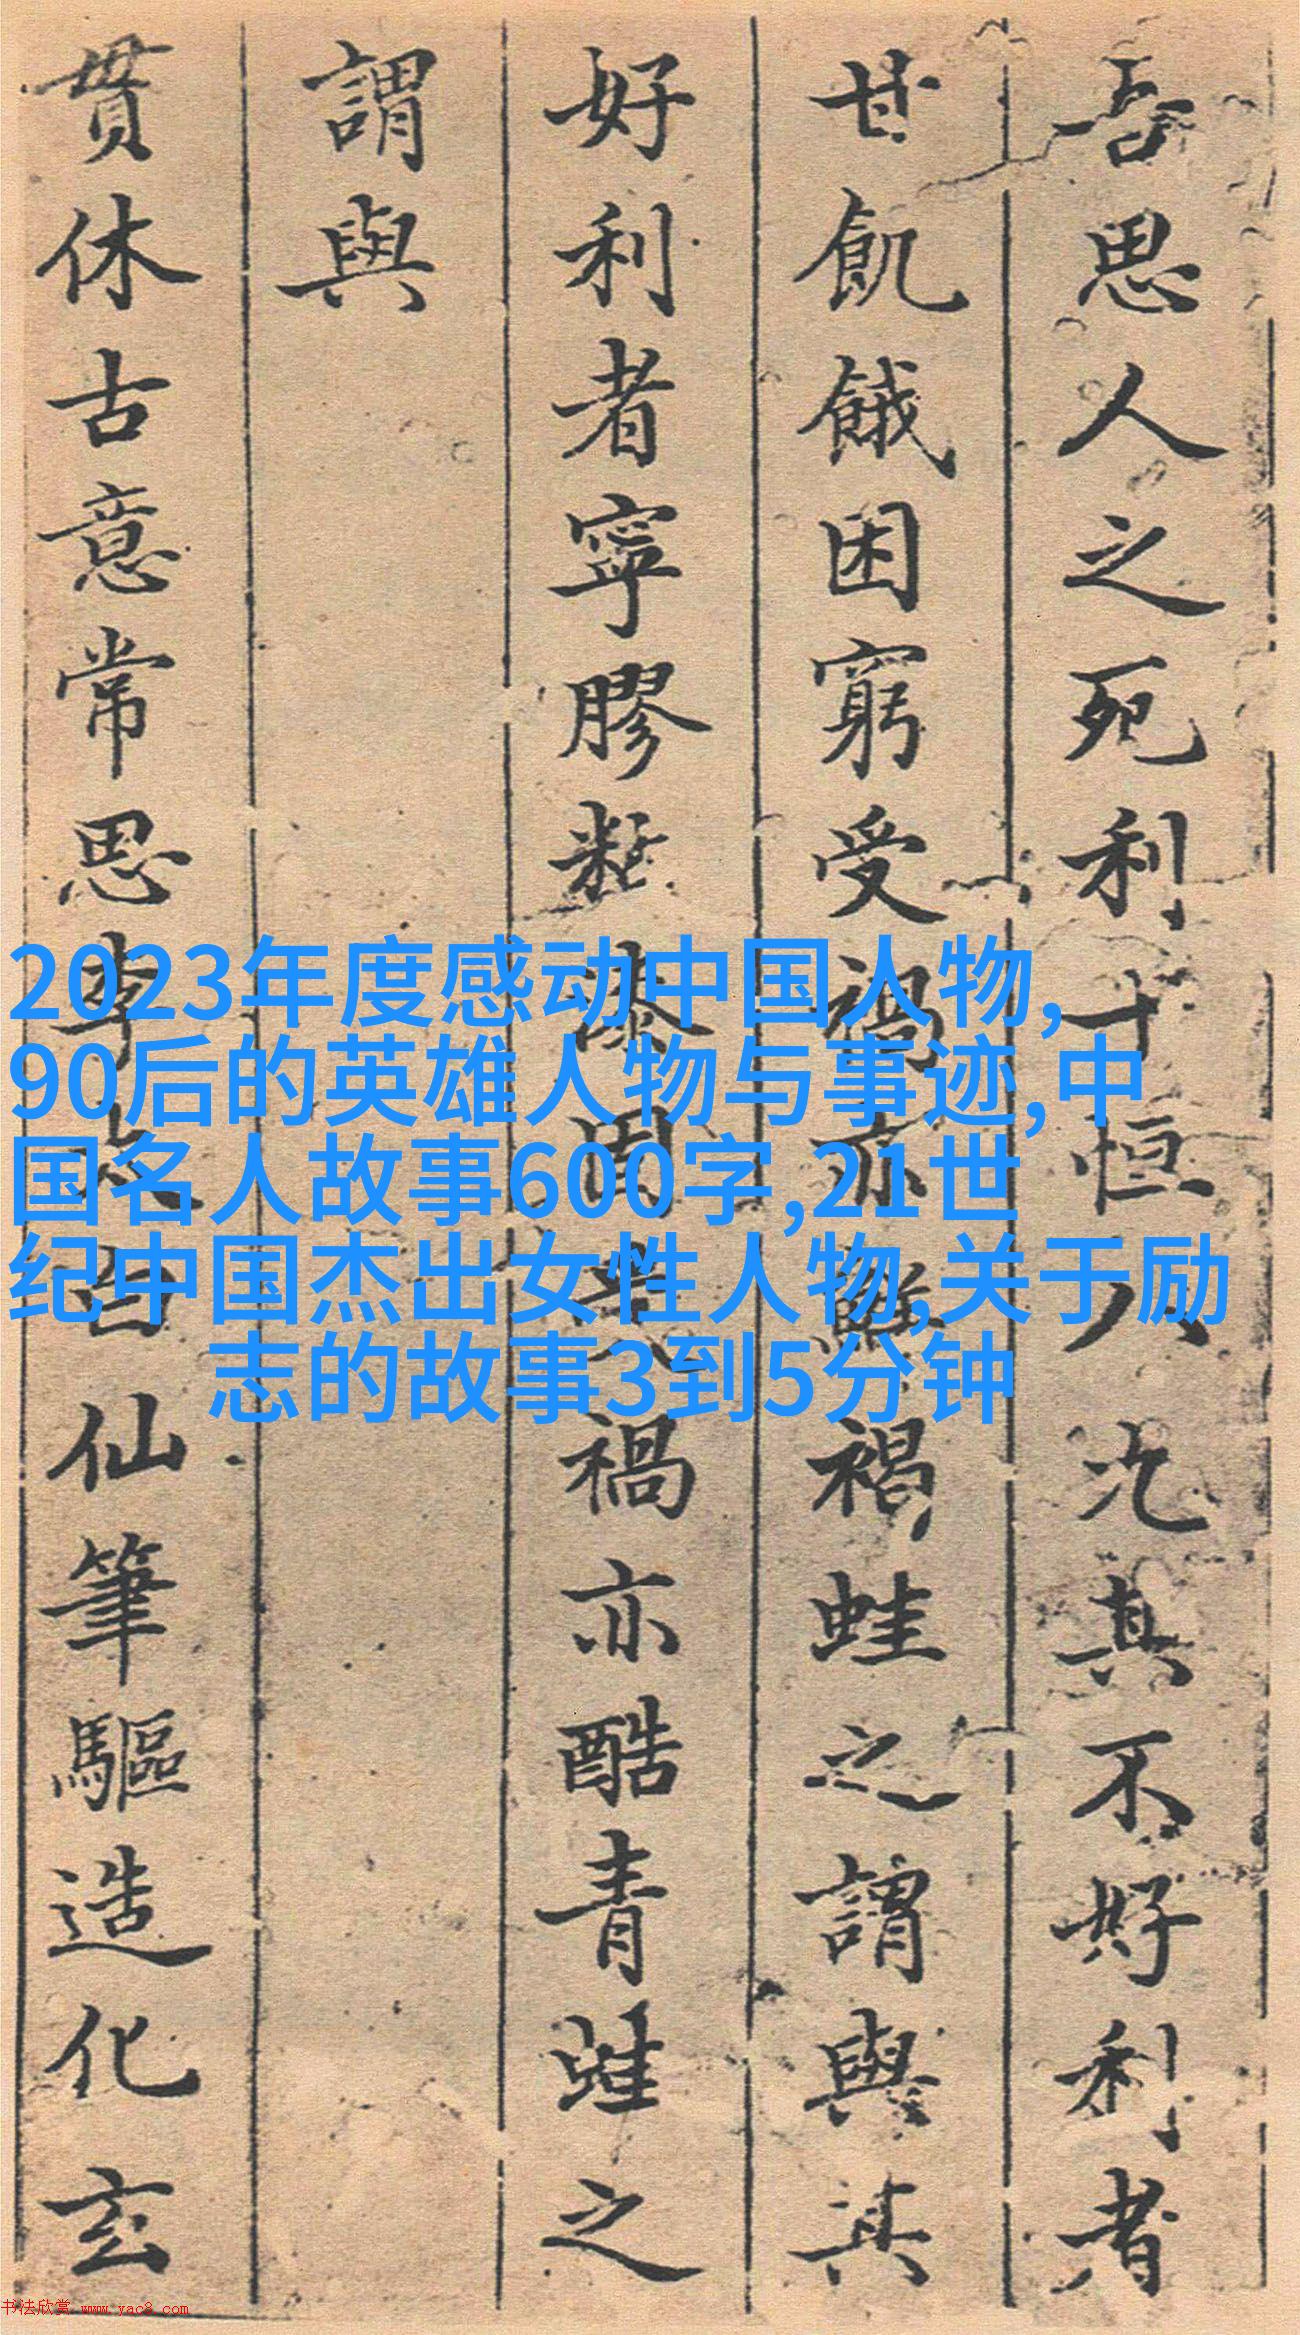 吾思人之死利十恒八况其不好利者
甘飢餓困窮受禍亦褐蛙之謂與其
好利者寧膠粘漆固禍亦酷青蛙之
謂與
贯休古意常思李太白仙筆驅造化玄
2023年度感动中国人物,
90后的英雄人物与事迹,中
国名人故事600字,21世
纪中国杰出女性人物,关于励
志的故事3到5分钟
书法欣赏 www.yac8.com